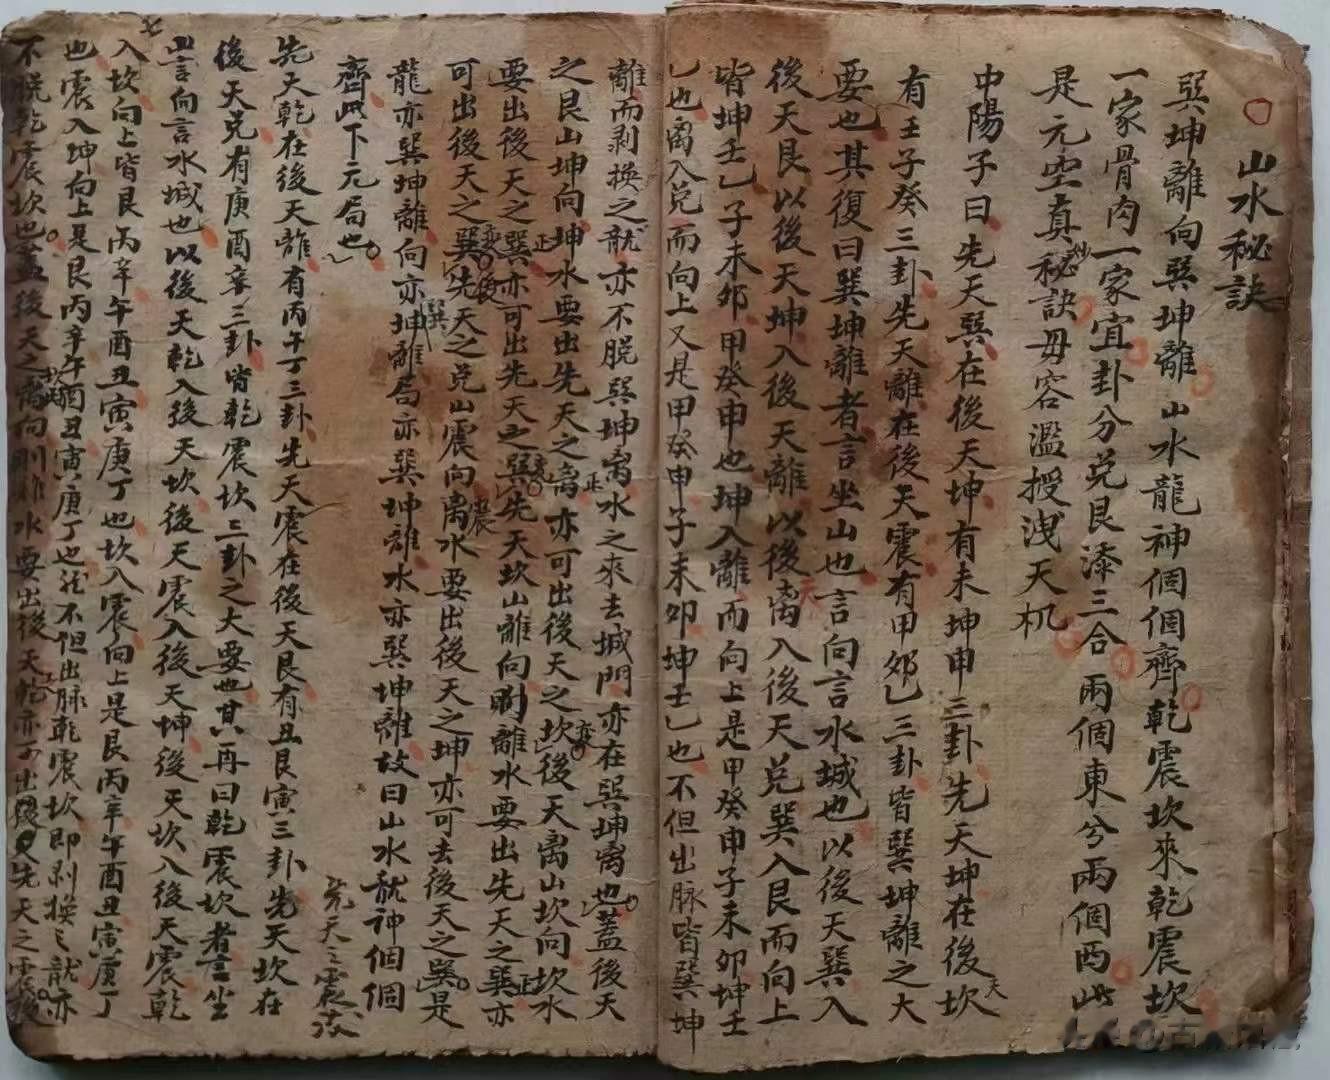 山水秘訣
巽坤離向巽坤離山水龍神個個齊乾震坎來乾震坎
一家骨肉一家宜卦分兌艮添三合兩個東兮兩個西此
是元空真秘訣毋容濫授洩天机
中陽子曰先天巽在後天坤有未坤申三卦先天坤在後坎
天
有壬子癸三卦先天離在後天震有甲邜乙三卦皆巽坤離之大
要也其復曰巽坤離者言坐山也言向言水城也以後天巽入
後天艮以後天坤入後天離以後離入後天兌巽入艮而向上
天
皆坤壬乙子未邜甲癸申也坤入離而向上是甲癸申子未邜坤壬
乙也离入兌而向上又是甲癸申子未卯坤壬乙也不但出脉皆巽坤
離而剥換之龍亦不脱巽坤离水之來去城門亦在巽坤离也蓋後天
之艮山坤向坤水要出先天之离亦可出後天之坎後天离山坎向坎水
要出後天之巽亦可出先天之巽先天坎山離向离水要出先天之巽亦
可出後天之巽先天之兌山震向离水要出後天之坤亦可去後天之巽是
龍亦巽坤離向亦坤離局亦巽坤離水亦巽坤離故曰山水龍神個個
巽
齊此下元局也
先天乾在後天離有丙午丁三卦先天震在後天艮有丑艮寅三卦先天坎在
後天兌有庚酉辛三卦皆乾震坎三卦之大要也其再曰乾震坎者言坐
山言向言水城也以後天乾入後天坎後天震入後天坤後天坎入後天震乾
入坎向上皆艮丙辛午酉丑寅庚丁也坎入震向上是艮丙辛午酉丑寅庚丁
也震入坤向上是艮丙辛午酉丑寅庚丁也不但出脉乾震坎即剥換之龍亦
不脱乾震坎也蓋後天之离向离水要出後天乾亦可出後天先天之震